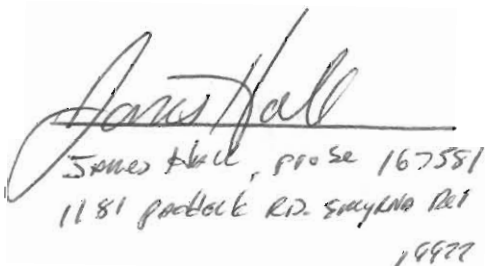 James Hall
James Hall, pro se 167581
1181 paddock RD. Smyrna Del
19977